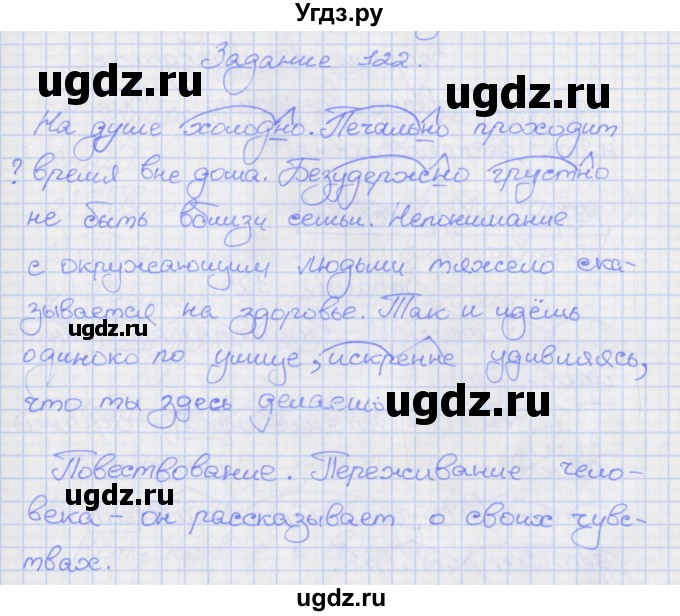 Угдз.ру
Задание 122.
ugdz.ru
ugdz.ru
На душе холодно. Печально проходит
? время вне дома. Безудержно грустно
не быть вблизи семьи. Непонимание
с окружающими людьми тяжело ска-
зывается на здоровье. Так и идёшь
ugdz.ru
одиноко по улице, искренне удивляясь,
что ты здесь делаешь
ugdz.ru
Повествование. Переживание чело-
ugdz.ru
века - он рассказывает о своих чувс-
ugdz.ru
твах.
ugdz.ru